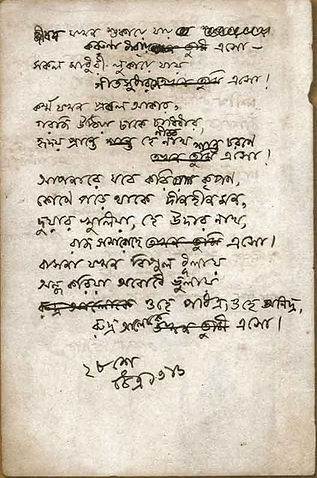 জীবন যখন শুকায়ে যায়
করুণা ধারায় তুমি এসো –
সকল মাধুরী লুকায়ে যায়
গীতসুধারসে তুমি এসো।
কর্ম যখন প্রবল আকার,
গরজি উঠিয়া ঢাকে চারিধার,
হৃদয় প্রান্তে হে নাথ শান্ত চরণে
তখন তুমি এসো।
আপনারে যবে করিয়া কৃপণ,
কোণে পড়ে থাকে দীনহীন মন,
দুয়ার খুলিয়া, হে উদার নাথ,
রাজ সমারোহে তখন তুমি এসো।
বাসনা যখন বিপুল ধূলায়
অন্ধ করিয়া অবোধে ভুলায়
রুদ্র আলোকে ওহে পবিত্র, ওহে অনিদ্র,
রুদ্র আলোকে তখন তুমি এসো।
২৮শে
চৈত্র ১৩১৬